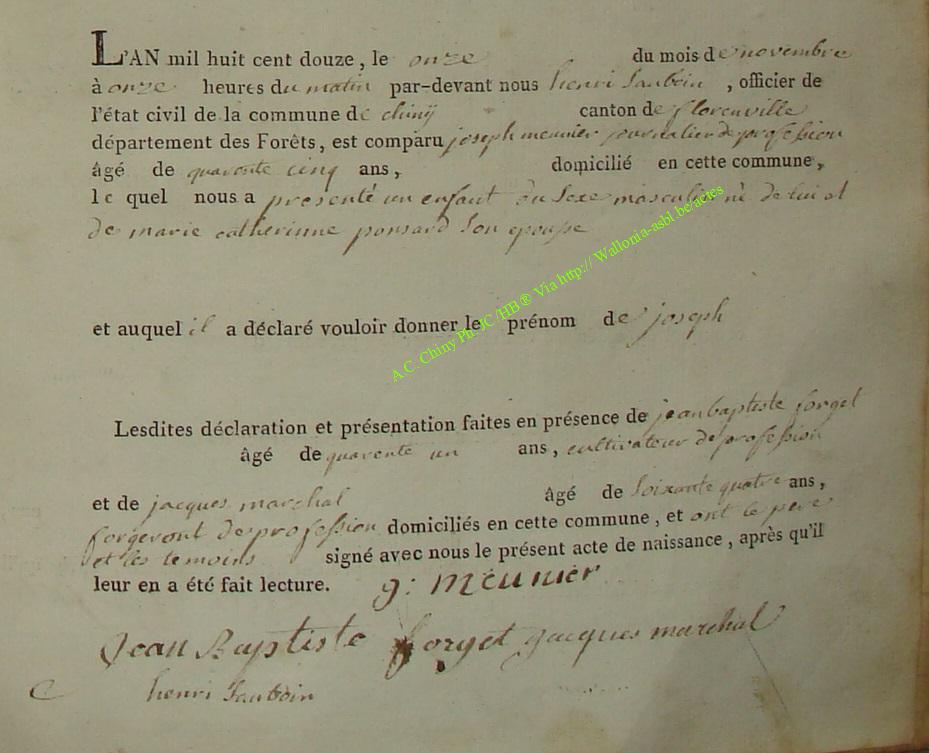 L'AN mil huit cent douze, le onze du mois de novembre
à onze heures du matin par-devant nous henri , officier de
l'état civil de la commune de chinÿ canton de florenville
département des Forêts, est comparu joseph meunier journalier de profession
âgé de quarante cinq ans, domicilié en cette commune,
le quel nous a presenté un enfant du sexe masculin né de lui et
de marie catherinne ponsard son epouse
et auquel il a déclaré vouloir donner le prénom de joseph
Lesdites déclaration et présentation faites en présence de jean baptiste forget
âgé de quarente un ans, cultivateur de profession
et de jacques marchal âgé de soixante quatre ans,
forgeront de profession domiciliés en cette commune, et ont le pere
et les temoins signé avec nous le présent acte de naissance, après qu'il
leur en a été fait lecture. g: meunier
Jean Baptiste forget jacques marchal
henri
A.C. Chiny Ph JC /HB® Via http:// Wallonia-asbl.be/actes